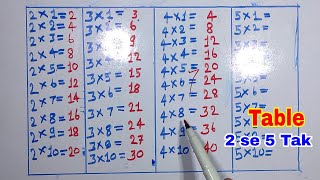 2×1=2
2×2=4
2×3=6
2×4=8
2×5=10
2×6=12
2×7=14
2×8=16
2×9=18
2×10=20
3×1=3
3×2=6
3×3=9
3×4=12
3×5=15
3×6=18
3×7=21
3×8=24
3×9=27
3×10=30
4×1=4
4×2=8
4×3=12
4×4=16
4×5=20
4×6=24
4×7=28
4×8=32
4×9=36
4×10=40
5×1=
5×2=
5×3=
5×4=
5×5=
5×6=
5×10=
Table
2 se 5 Tak